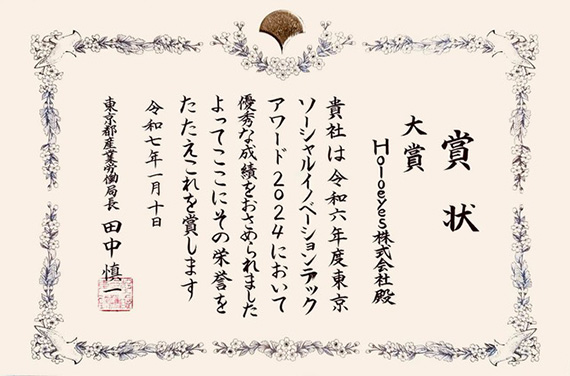 賞状
大賞
Holoeyes株式会社殿
貴社は令和六年度東京
ソーシャルイノベーションテック
アワード2024において
優秀な成績をおさめられました
よってここにその栄誉を
たたえこれを賞します
令和七年一月十日
東京都産業労働局長 田中慎一